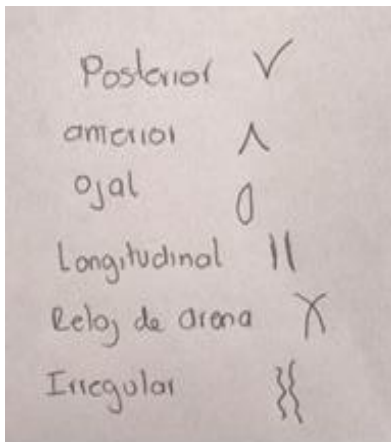 Posterior
anterior
ojal
Longitudinal
Reloj de arena
Irregular